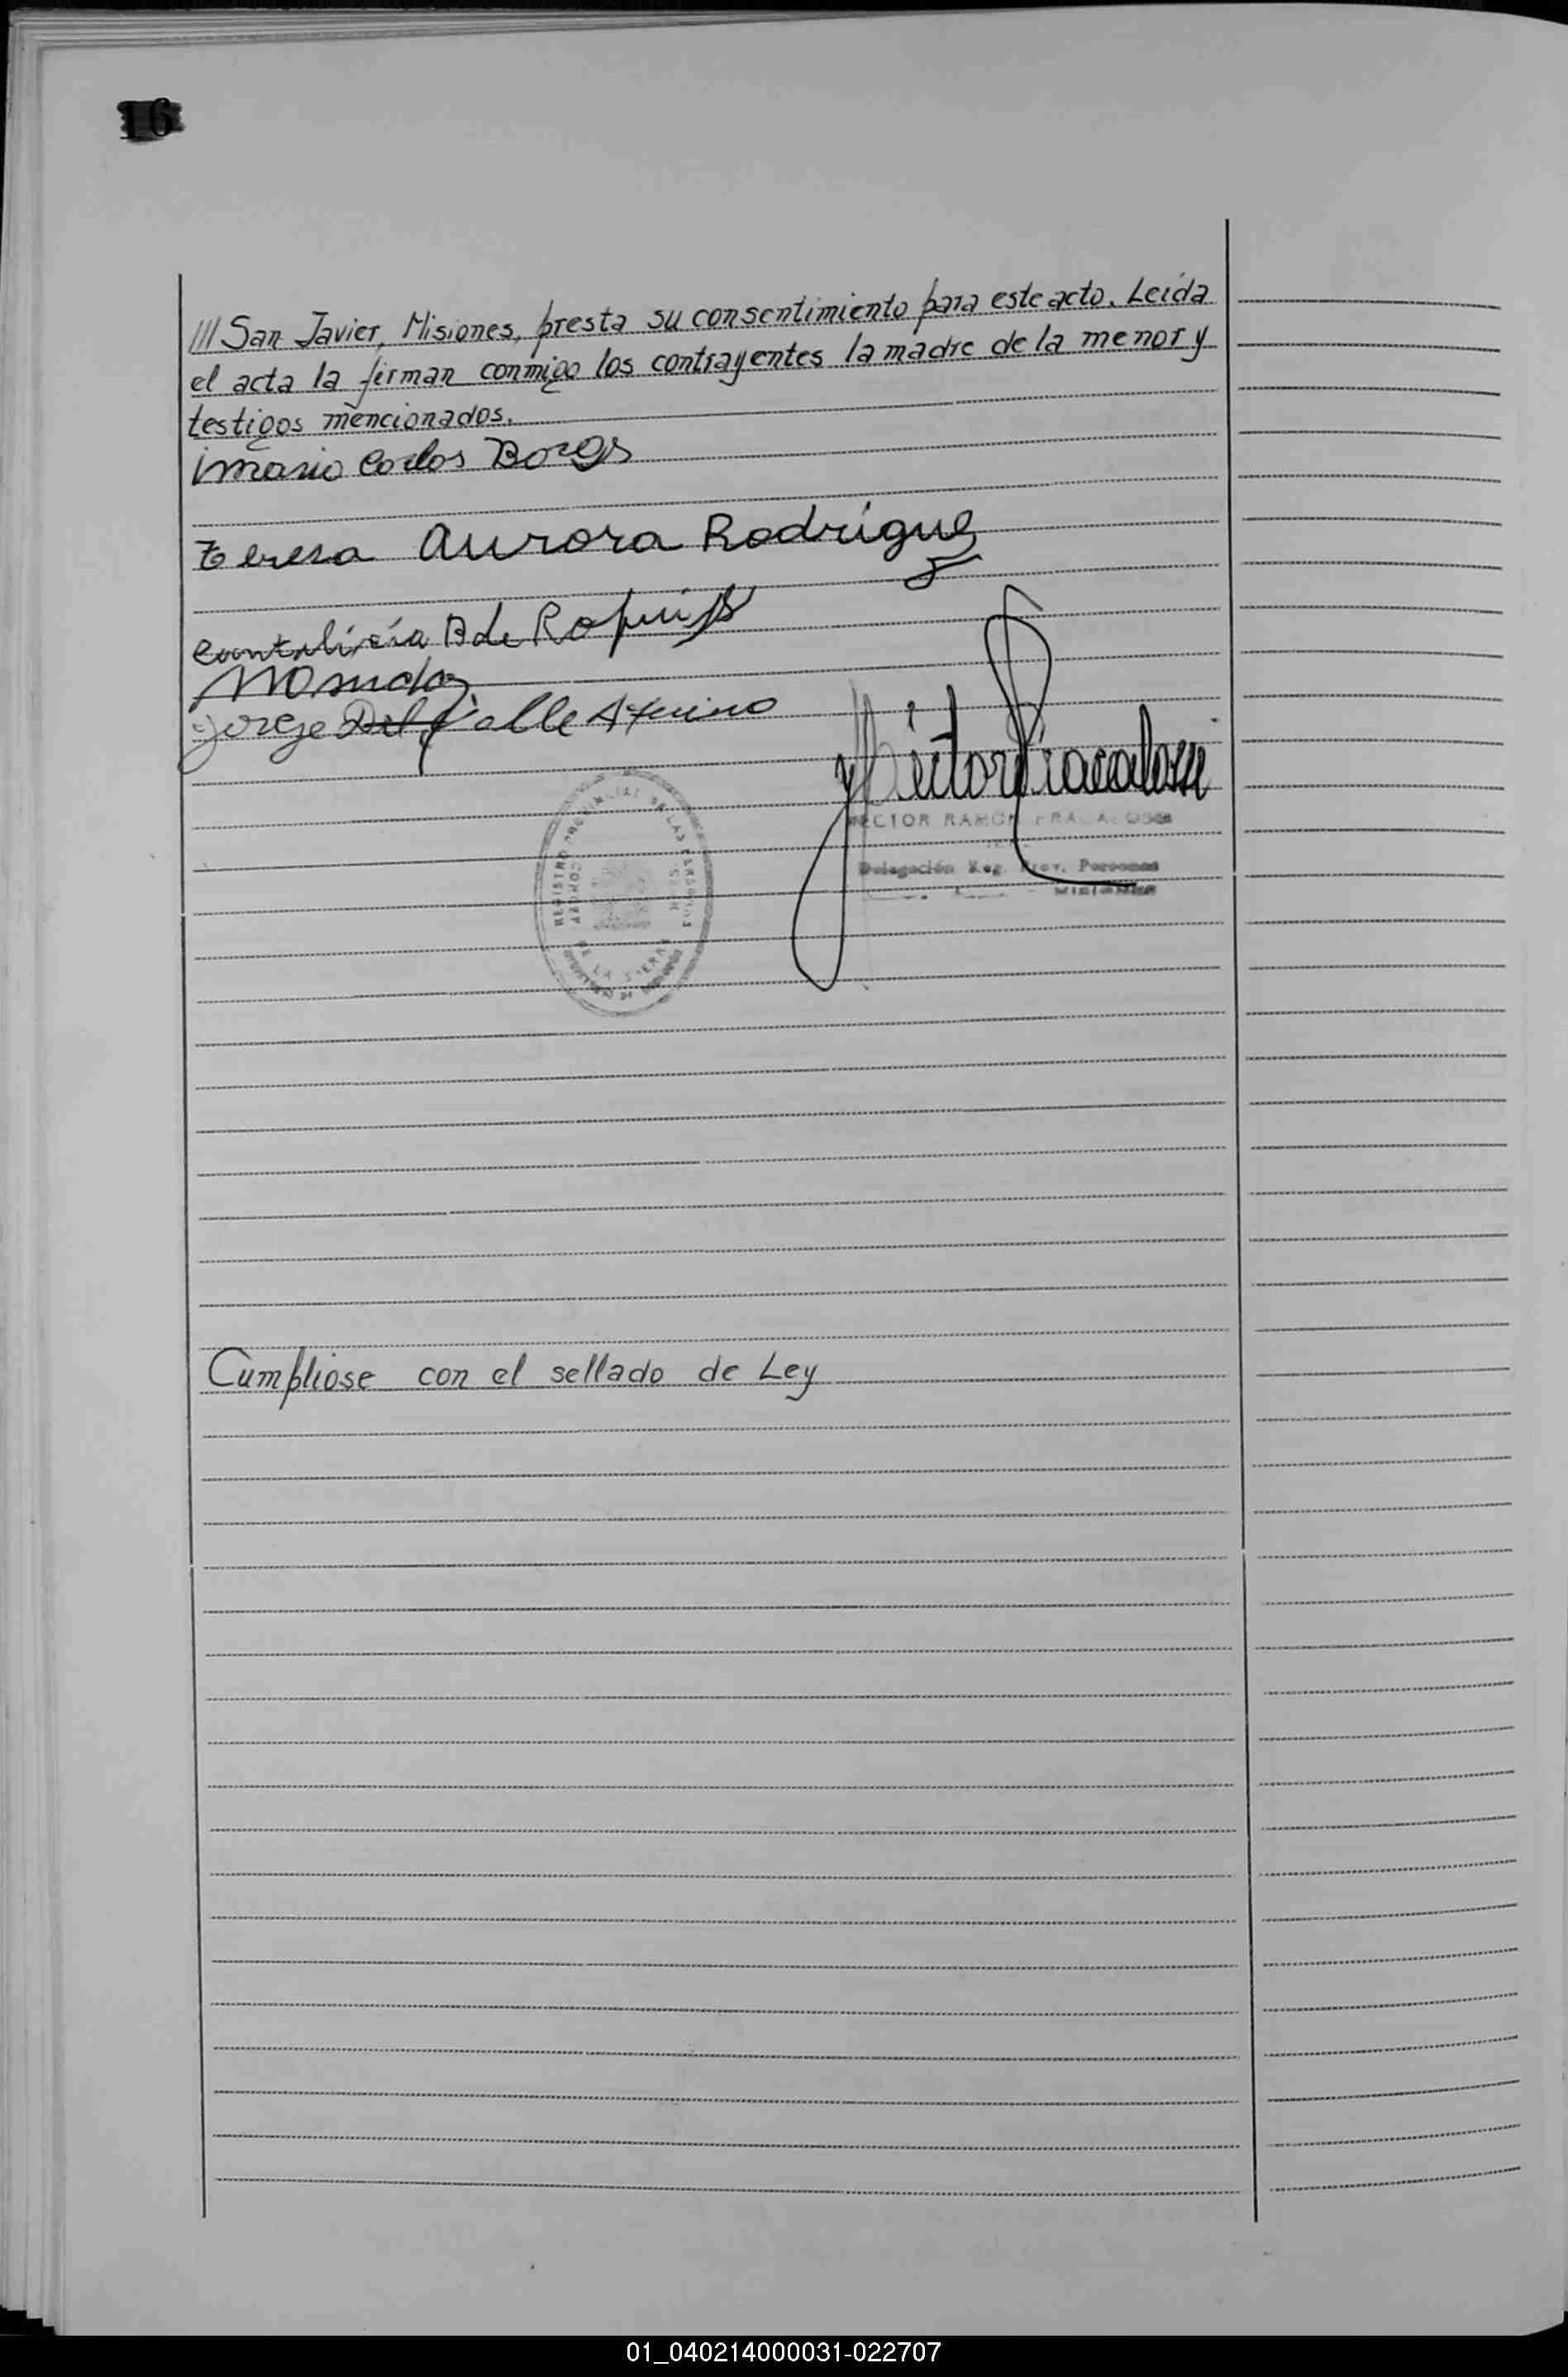 16
/// San Javier, Misiones, presta su consentimiento para este acto. Leída
el acta la firman conmigo los contrayentes la madre de la menor y
testigos mencionados.
Mario Carlos Borges
teresa aurora Rodrigue
z
B de
Jorge Del Valle Aquino
Hector Fracalossi
HECTOR RAMON FRACALOSSI
Delegación Reg. Prov. Personas
REGISTRO PROVINCIAL DE LAS PERSONAS
DE LA SIERRA
Cumpliose con el sellado de Ley
01_040214000031-022707